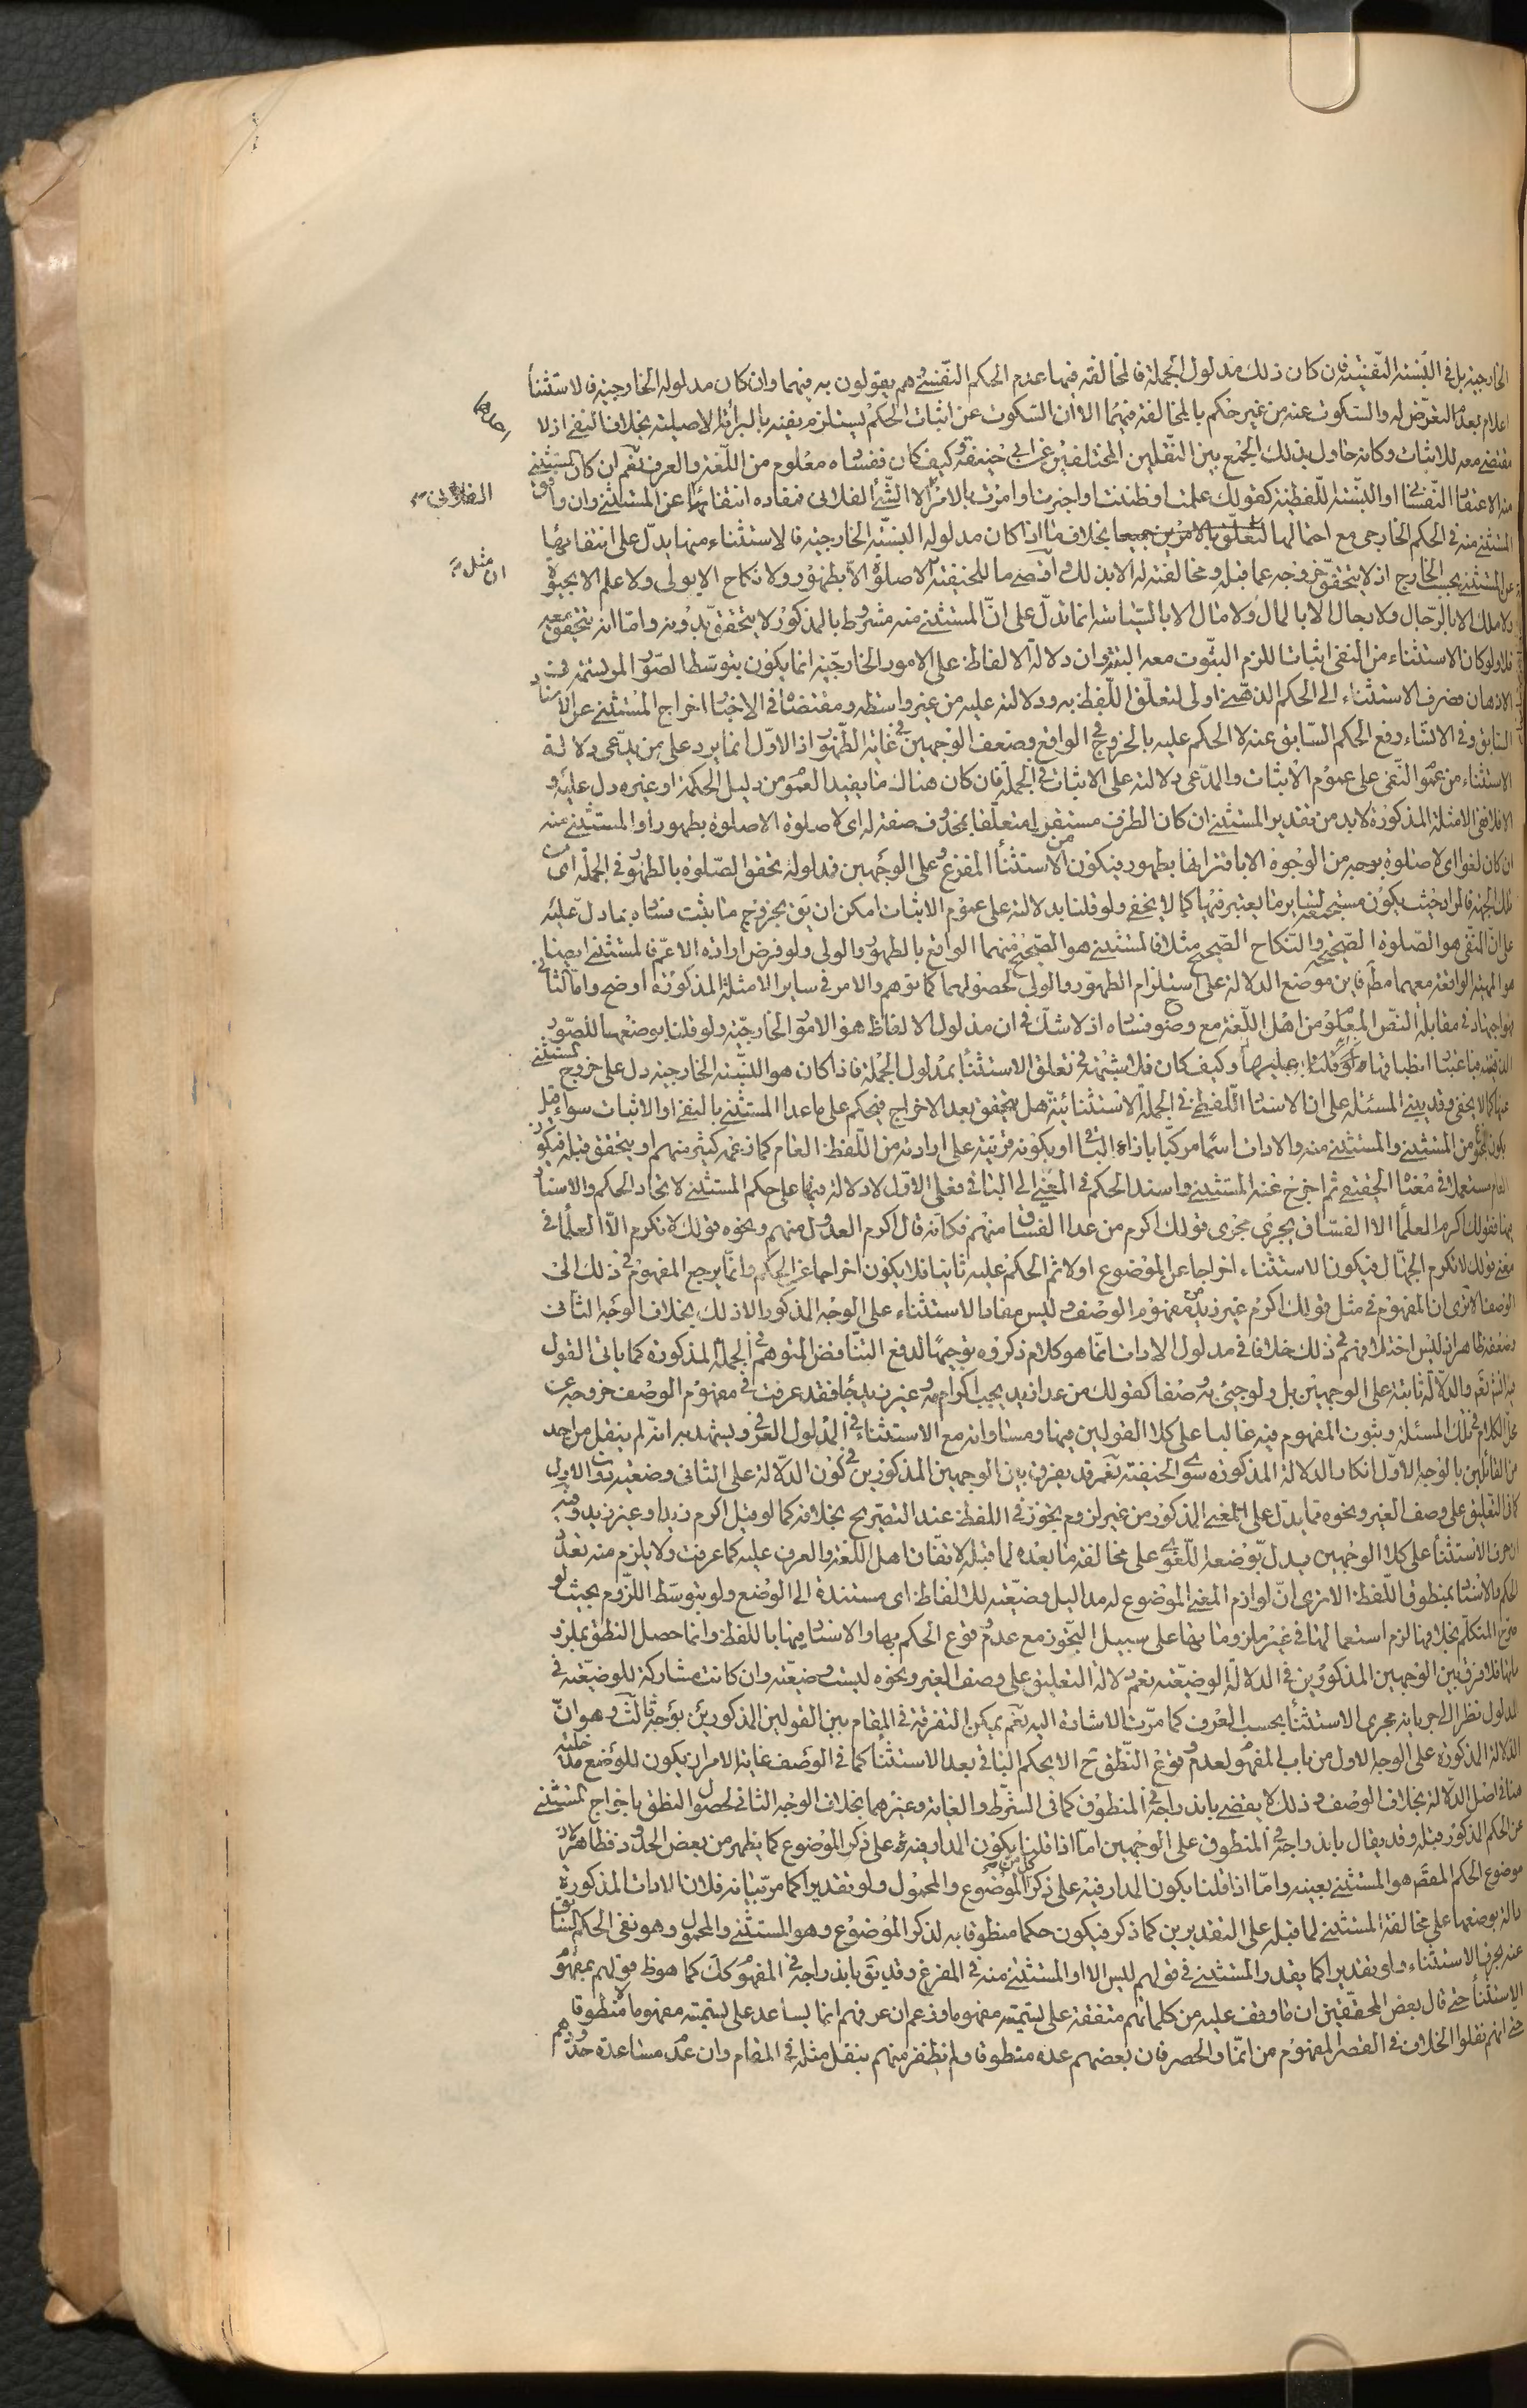 الخارجية بل في النسبة النفسية فان كان ذلك مدلول الجملة فالمخالفة فيهما عدم الحكم النفسي وهم يقولون به فيهما وان كان مدلوله الخارجية فالاستثناء
اعلام بعدم التعرض له والسكوت عنه من غير حكم بالمخالفة فيهما الا ان السكوت عن اثبات الحكم يستلزم نفيه بالبرائة الاصلية بخلاف النفي اذ لا
مقتضى معه للاثبات وكانه حاول بذلك الجمع بين النقلين المختلفين عن ابي حنيفة وكيف كان ففساده معلوم من اللغة والعرف نعم ان كان المستثنى
منه الاعتقاد النفسي او النسبة اللفظية كقولك علمت او ظننت او اخبرت او امرت بالامر الا الشئ الفلاني فمفاده انتفائها عن المستثنى وان وافق
المستثنى منه في الحكم الخارجي مع احتمالها لتعلق بالامرين جميعا بخلاف ما اذا كان مدلوله النسبة الخارجية فالاستثناء منها يدل على انتفائها
عن المستثنى بحسب الخارج اذ لا يتحقق خروجه عما قبله ومخالفته له الا بذلك واقصى ما للحنفية لا صلوة الا بطهور ولا نكاح الا بولي ولا علم الا بحيوة
ولا ملك الا بالرجال ولا رجال الا بالمال ولا مال الا بالسياسة انما تدل على ان المستثنى منه مشروط بالمذكور لا يتحقق بدونه واما انه يتحقق معه
فلا ولو كان الاستثناء من النفي اثباتا للزم الثبوت معه البتة وان دلالة الالفاظ على الامور الخارجية انما يكون بتوسط الصور المرتسمة في
الاذهان فصرف الاستثناء الى الحكم الذهني اولى لتعلق اللفظ به ودلالته عليه من غير واسطة ومقتضاه في الاخبار اخراج المستثنى عن الاسناد
السابق وفي الانشاء رفع الحكم السابق عنه لا الحكم عليه بالخروج في الواقع وضعف الوجهين في غاية الظهور اذ الاول انما يرد على من يدعي دلالة
الاستثناء من عموم النفي على عموم الاثبات والمدعى دلالته على الاثبات في الجملة فان كان هناك ما يفيد العموم من دليل الحكمة او غيره دل عليه و
الا فلا ففي الامثلة المذكورة لا بد من تقدير المستثنى ان كان الظرف مستقرا متعلقا بمحذوف صفة له اي لا صلوة الا صلوة بطهور او المستثنى منه
ان كان لغوا اي لا صلوة بوجه من الوجوه الا باقترانها بطهور فيكون من الاستثناء المفرغ وعلى الوجهين فمدلوله تحقق الصلوة بالطهور في الجملة اي من
تلك الجهة فالمراد حيث يكون مستجمعة لساير ما يعتبر فيها كما لا يخفى ولو قلنا بدلالته على عموم الاثبات امكن ان يق بخروج ما يثبت فساده بما دل عليه
على ان المنفي هو الصلوة الصحيحة والنكاح الصحيح مثلا فالمستثنى هو الصحيح منهما الواقع بالطهور والولي ولو فرض ارادة الاعم فالمستثنى ايضا
هو المهية الواقعة معهما مط فاين موضع الدلالة على استلزام الطهور والولي لحصولهما كما توهم والامر في ساير الامثلة المذكورة اوضح واما الثاني
فهو اجتهاد في مقابلة النص المعلوم من اهل اللغة مع وضوح فساده اذ لا شك في ان مدلول الالفاظ هو الامور الخارجية ولو قلنا بوضعها للصور
الذهنية فباعتبار انطباقها ولو قلنا عليها وكيف كان فلا شبهة في تعلق الاستثناء بمدلول الجملة فاذا كان هو النسبة الخارجية دل على خروج المستثنى
عنها كما لا يخفى وقد يبنى المسئلة على ان الاسناد اللفظي في الجملة الاستثنائية هل يتحقق بعد الاخراج فيحكم على ما عدا المستثنى بالنفي او الاثبات سواء قيل
بكون المجموع من المستثنى والمستثنى منه والادات اسما مركبا بازاء الباقي او بكونه قرينة على ارادته من اللفظ العام كما زعمه كثير منهم او يتحقق قبله فيكون
العام مستعملا في معناه الحقيقي ثم اخرج عنه المستثنى واسند الحكم في المعنى الى الباقي فعلى الاول لا دلالة فيها على حكم المستثنى لاتحاد الحكم والاسناد
فيها فقولك اكرم العلماء الا الفساق يجري مجرى قولك اكرم من عدا الفساق منهم فكانه قال اكرم العدول منهم ونحوه قولك لا تكرم الا العلماء في
معنى قولك لا تكرم الجهال فيكون الاستثناء اخراجا عن الموضوع اولا ثم الحكم عليه ثانيا فلا يكون اخراجا عن الحكم وانما يرجع المفهوم في ذلك الى
الوصف الا ترى ان المفهوم في مثل قولك اكرم غير زيد من مفهوم الوصف وليس مفادا لاستثناء على الوجه المذكور الا ذلك بخلاف الوجه الثاني
وضعفه ظاهر اذ ليس اختلافهم في ذلك خلافا في مدلول الادات انما هو كلام ذكروه توجيها لدفع التناقض المتوهم في الجملة المذكورة كما ياتي القول
فيه انشاء الله تعالى والدلالة ثابتة على الوجهين بل ولو جيئ به وصفا كقولك من عدا زيد يجب اكرامه وغير زيد جاء فقد عرفت في مفهوم الوصف خروجه عن
محل الكلام في تلك المسئلة وثبوت المفهوم فيه غالبا على كلا القولين فيها ومساواته مع الاستثناء في المدلول العرفي ويشهد به انه لم ينقل من احد
من القائلين بالوجه الاول انكار الدلالة المذكورة سوى الحنفية نعم قد يفرق بين الوجهين المذكورين في كون الدلالة على الثاني وضعية دون الاول
كان التعليق على وصف الغير ونحوه مما يدل على المعنى المذكور من غير لزوم تجوز في اللفظ عند التصريح بخلافه كما لو قيل اكرم زيدا وغير زيد وفيه
ان حرف الاستثناء على كلا الوجهين يدل بوضعه اللغوي على مخالفة ما بعده لما قبله لاتفاق اهل اللغة والعرف عليه كما عرفت ولا يلزم منه تعدد
الحكم والاسناد بمنطوق اللفظ الا ترى ان لوازم المعنى الموضوع له مداليل وضعية للالفاظ اي مستندة الى الوضع ولو بتوسط اللزوم بحيث لو
صرح المتكلم بخلافها لزم استعمالها في غير ملزوماتها على سبيل التجوز مع عدم وقوع الحكم بها والاسناد فيها باللفظ وانما حصل النطق بملزو
ماتها فلا فرق بين الوجهين المذكورين في الدلالة الوضعية نعم دلالة التعليق على وصف الغير ونحوه ليست وضعية وان كانت مشاركة للوضعية في
المدلول نظرا الى جريانه مجرى الاستثناء بحسب العرف كما مرت الاشارة اليه نعم يمكن التفرقة في المقام بين القولين المذكورين بوجه ثالث وهو ان
الدلالة المذكورة على الوجه الاول من باب المفهوم لعدم وقوع النطق ح الا بحكم الباقي بعد الاستثناء كما في الوصف غاية الامر ان يكون للوضع مدخلية
هنا في اصل الدلالة بخلاف الوصف وذلك لا يقضي باندراجه في المنطوق كما في الشرط والغاية وغيرهما بخلاف الوجه الثاني لحصول النطق باخراج المستثنى
عن الحكم المذكور قبله وقد يقال باندراجه في المنطوق على الوجهين اما اذا قلنا بكون المدار فيه على ذكر الموضوع كما يظهر من بعض الحدود فظاهر لان
موضوع الحكم المقصود هو المستثنى بعينه واما اذا قلنا بكون المدار فيه على ذكر كل من الموضوع والمحمول ولو تقديرا كما مر بيانه فلان الادات المذكورة
دالة بوضعها على مخالفة المستثنى لما قبله على التقديرين كما ذكر فيكون حكما منطوقا به لذكر الموضوع وهو المستثنى والمحمول وهو نفي الحكم السابق
عنه بحرف الاستثناء ولو تقديرا كما يقدر المستثنى في قولهم ليس الا او المستثنى منه في المفرغ وقد يق باندراجه في المفهوم كك كما هو ظ قولهم بمفهوم
الاستثناء حتى قال بعض المحققين ان ما وقف عليه من كلماتهم متفقة على تسميته مفهوما وزعم ان عرفهم انما يساعد على تسميته مفهوما لا منطوقا
حتى انهم نقلوا الخلاف في القصر المفهوم من انما والحصر فان بعضهم عده منطوقا ولم نظفر منهم بنقل مثله في المقام وان عدم مساعدة حدودهم
الفلاني
ان مثل